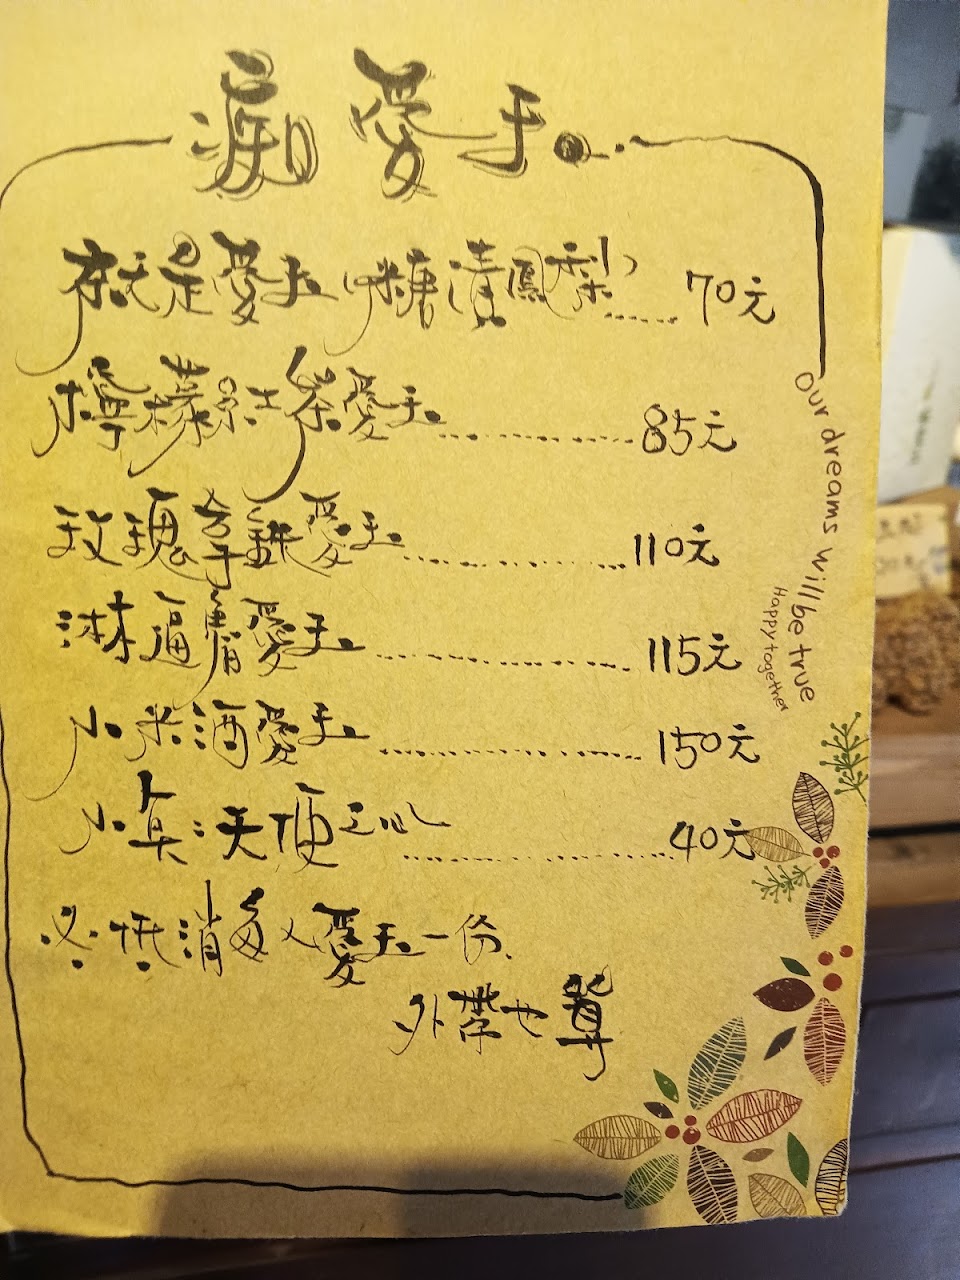 痴愛玉...
就是愛玉(糖漬鳳梨)......70元
檸檬紅茶愛玉......85元
玫瑰拿鐵愛玉......110元
愛玉......115元
小米酒愛玉......150元
小 心......40元
必低消每人愛玉一份.
外帶也算
our dreams will be true
Happy together